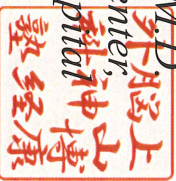 M.D.
enter,
pital
上山博康
脳神経
外科塾